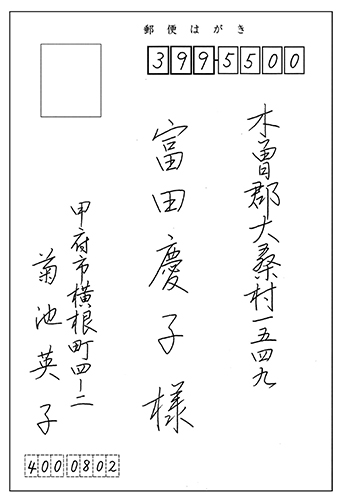 郵便はがき
399-5500
木曽郡大桑村一五四九
富田慶子様
甲府市横根町四ー二
菊池英子
4000802